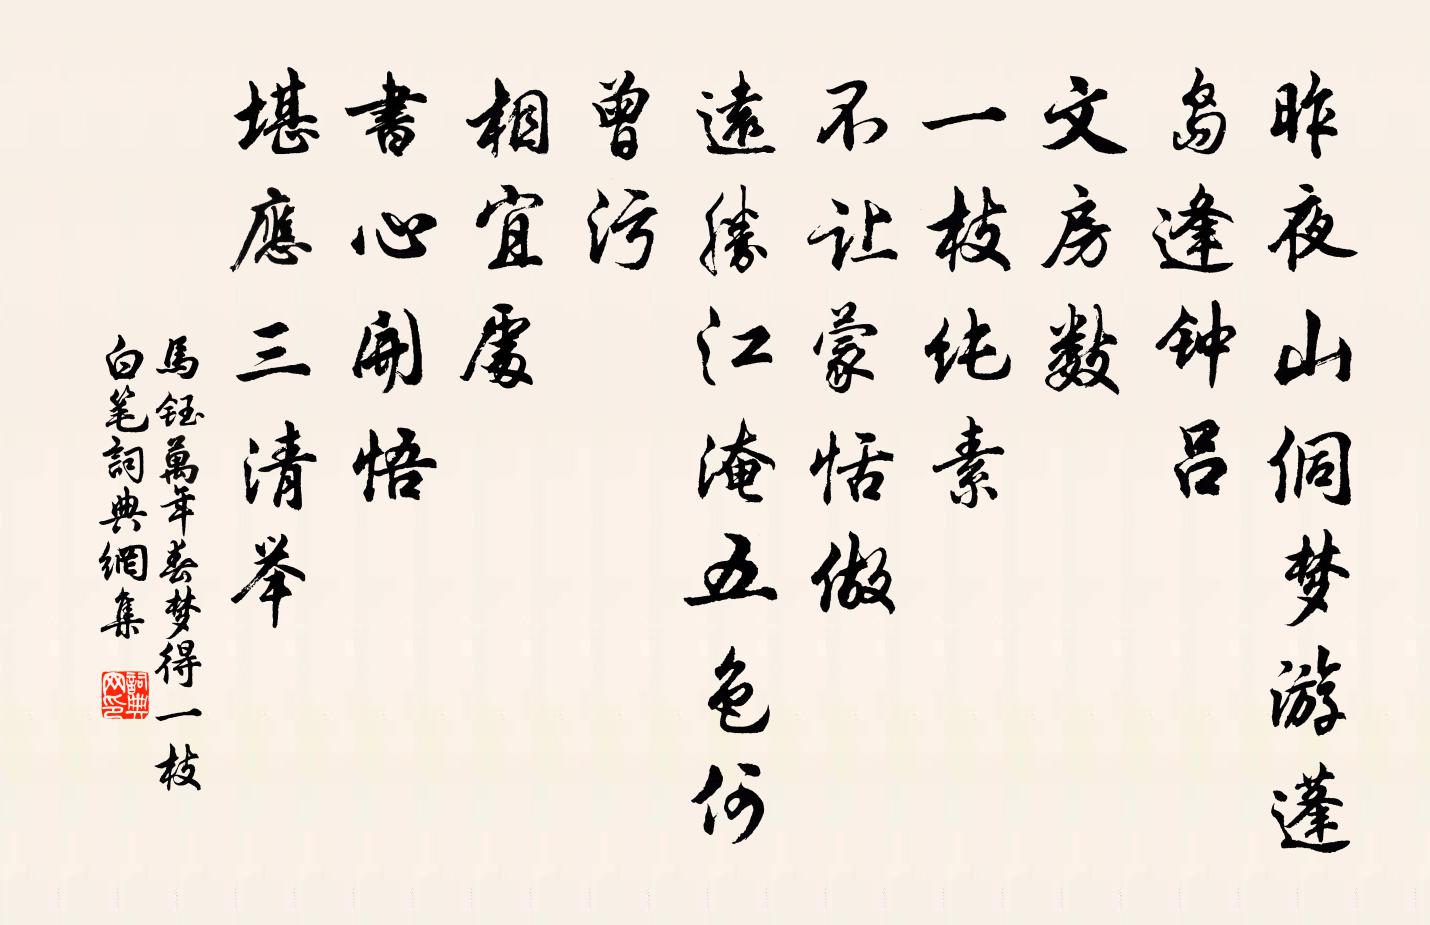 昨夜山侗梦游蓬
岛逢钟吕
文房数
一枝纯素
不让蒙恬做
遠勝江淹五色何
曾污
相宜處
書心開悟
堪應三清举
馬鈺萬年春梦得一枝
白笔詞典網集
詞典网印